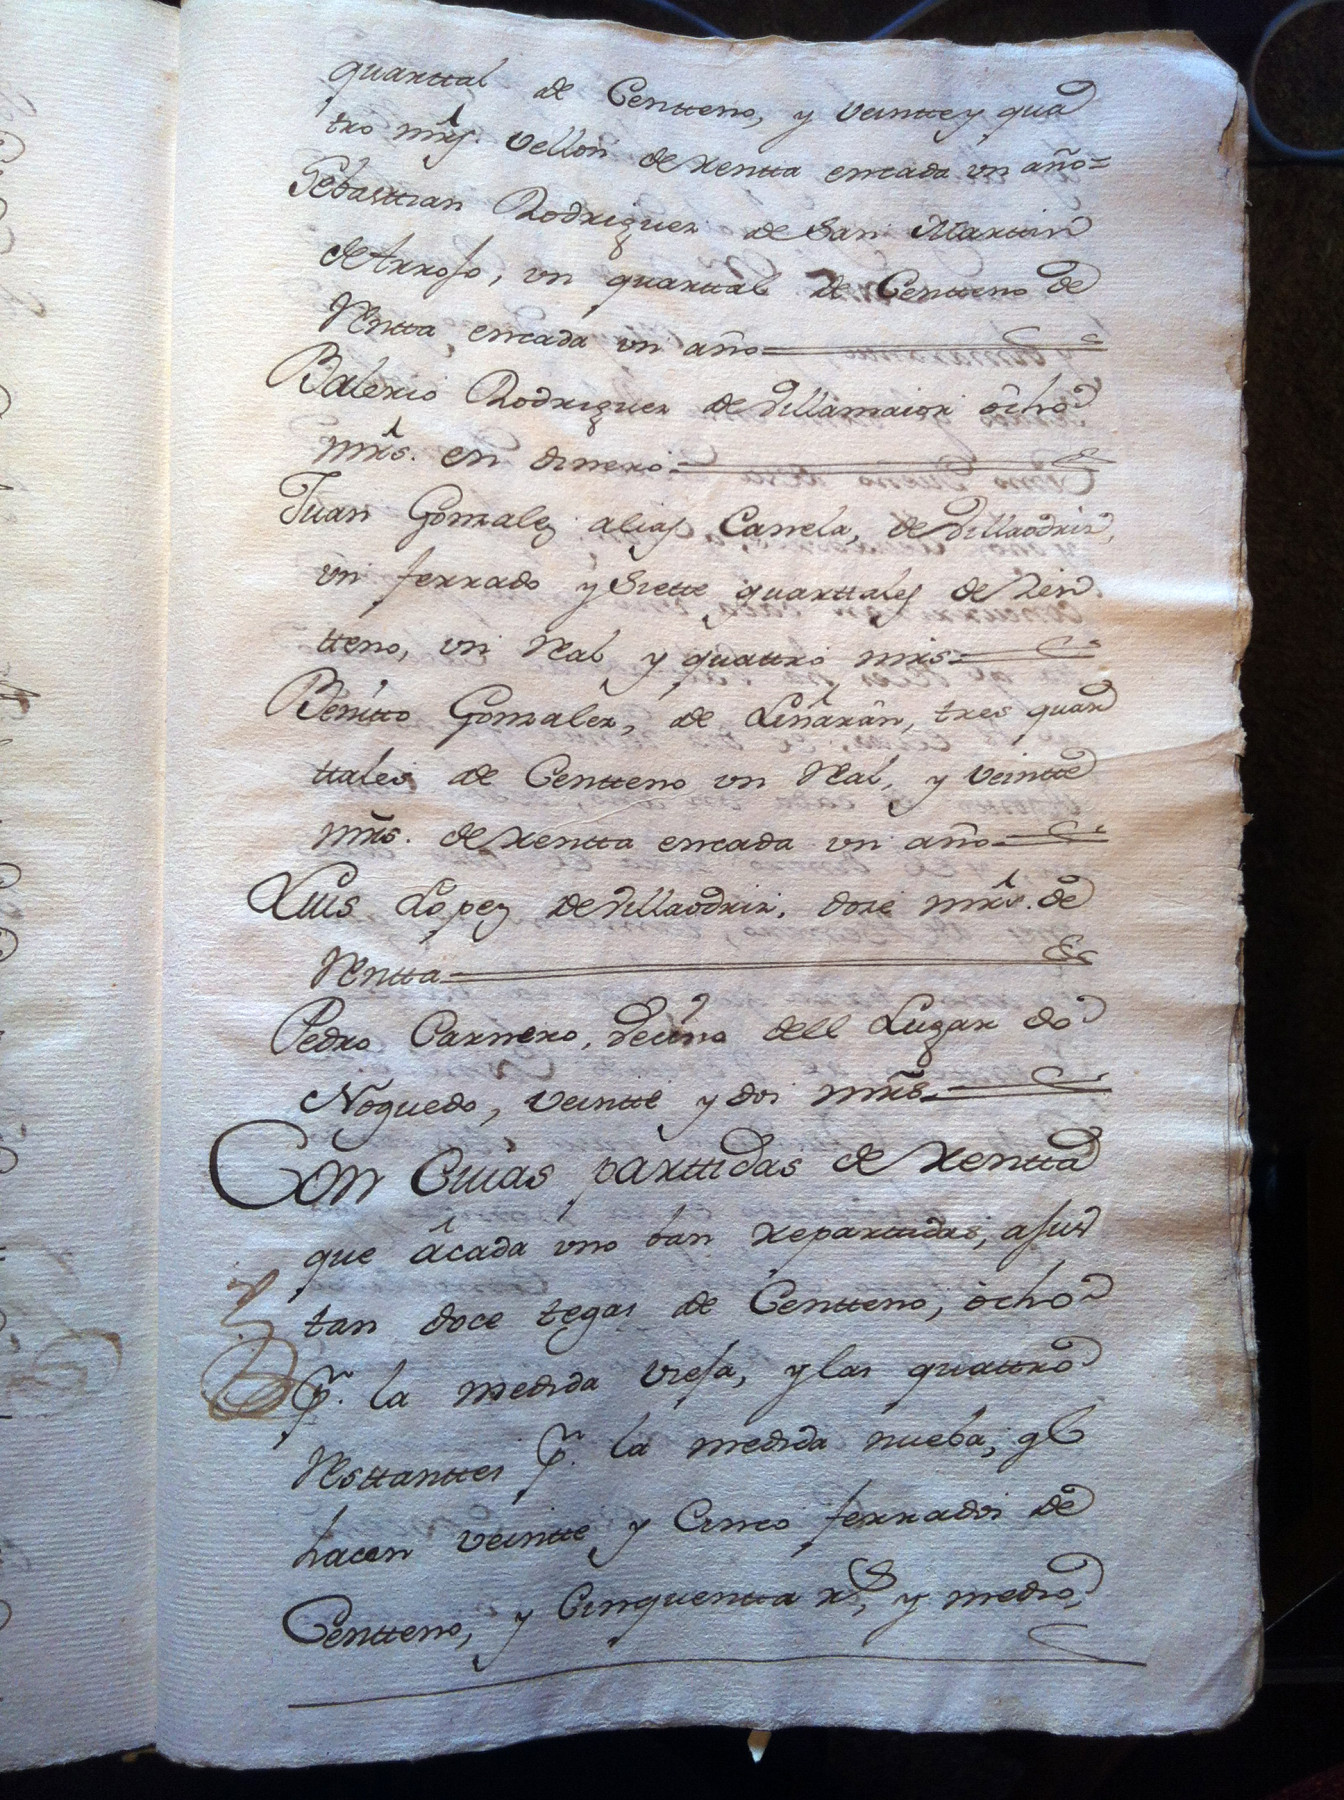 quarttal de Centteno, y veintte y qua
tro mrs. vellon de rentta encada un año=
Sebasttian Rodriguez de San Marttin
de Arrojo, un quarttal de Centteno de
Rentta encada un año
Balerio Rodriguez de Villamaior ocho
mrs. en dinero
Juan Gonzalez alias Canela, de Villaodriz,
un ferrado y Siette quarttales de Zen
tteno, un Real y quattro mrs
Benitto Gonzalez, de Liñarán, tres quar
ttales de Centteno un Real, y veintte
mrs. de rentta encada un año
Luis Lopez de Villaodriz, doze mrs. de
Rentta
Pedro Carnero, vecino dell Lugar do
Noguedo, veintte y dos mrs.
Con Cuias parttidas de rentta
que ácada uno ban reparttidas, ajus
tan doce tegas de Centteno, ocho
p.r la medida vieja, y las quattro
Resttanttes p.r la medida nueba; q.e
hacen veintte y Cinco ferrados de
Centteno, y Cinquentta rs, y medio,